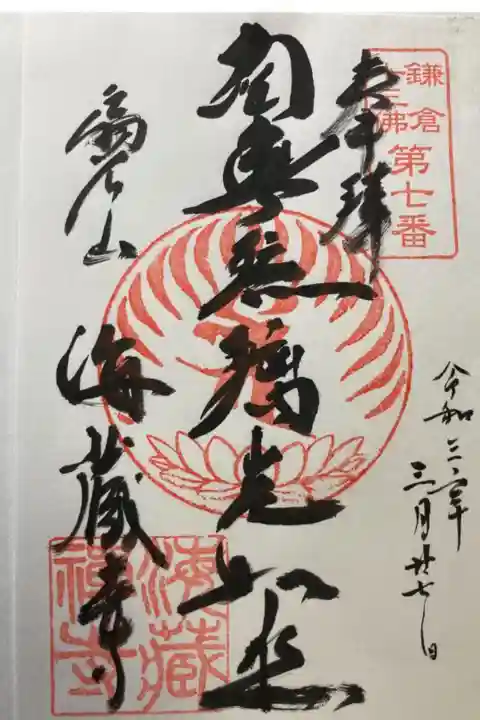 鎌倉
十三佛
第七番
奉拝
南無瑠璃光如来
扇谷山
海蔵寺
海藏
禅寺
令和三年
三月廿七日